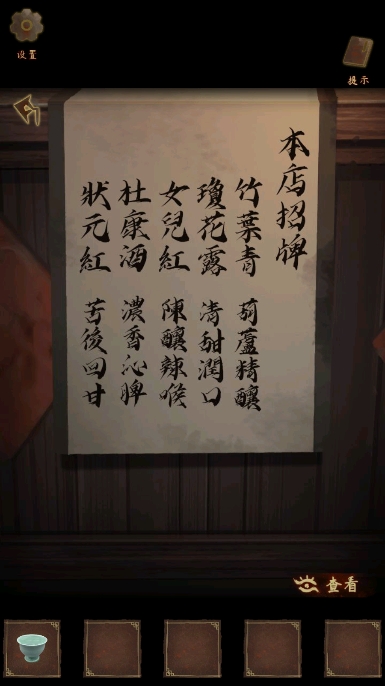 设置
提示
本店招牌
竹葉青 葫蘆精釀
瓊花露 清甜潤口
女兒紅 陳釀辣喉
杜康酒 濃香沁脾
狀元紅 苦後回甘
查看